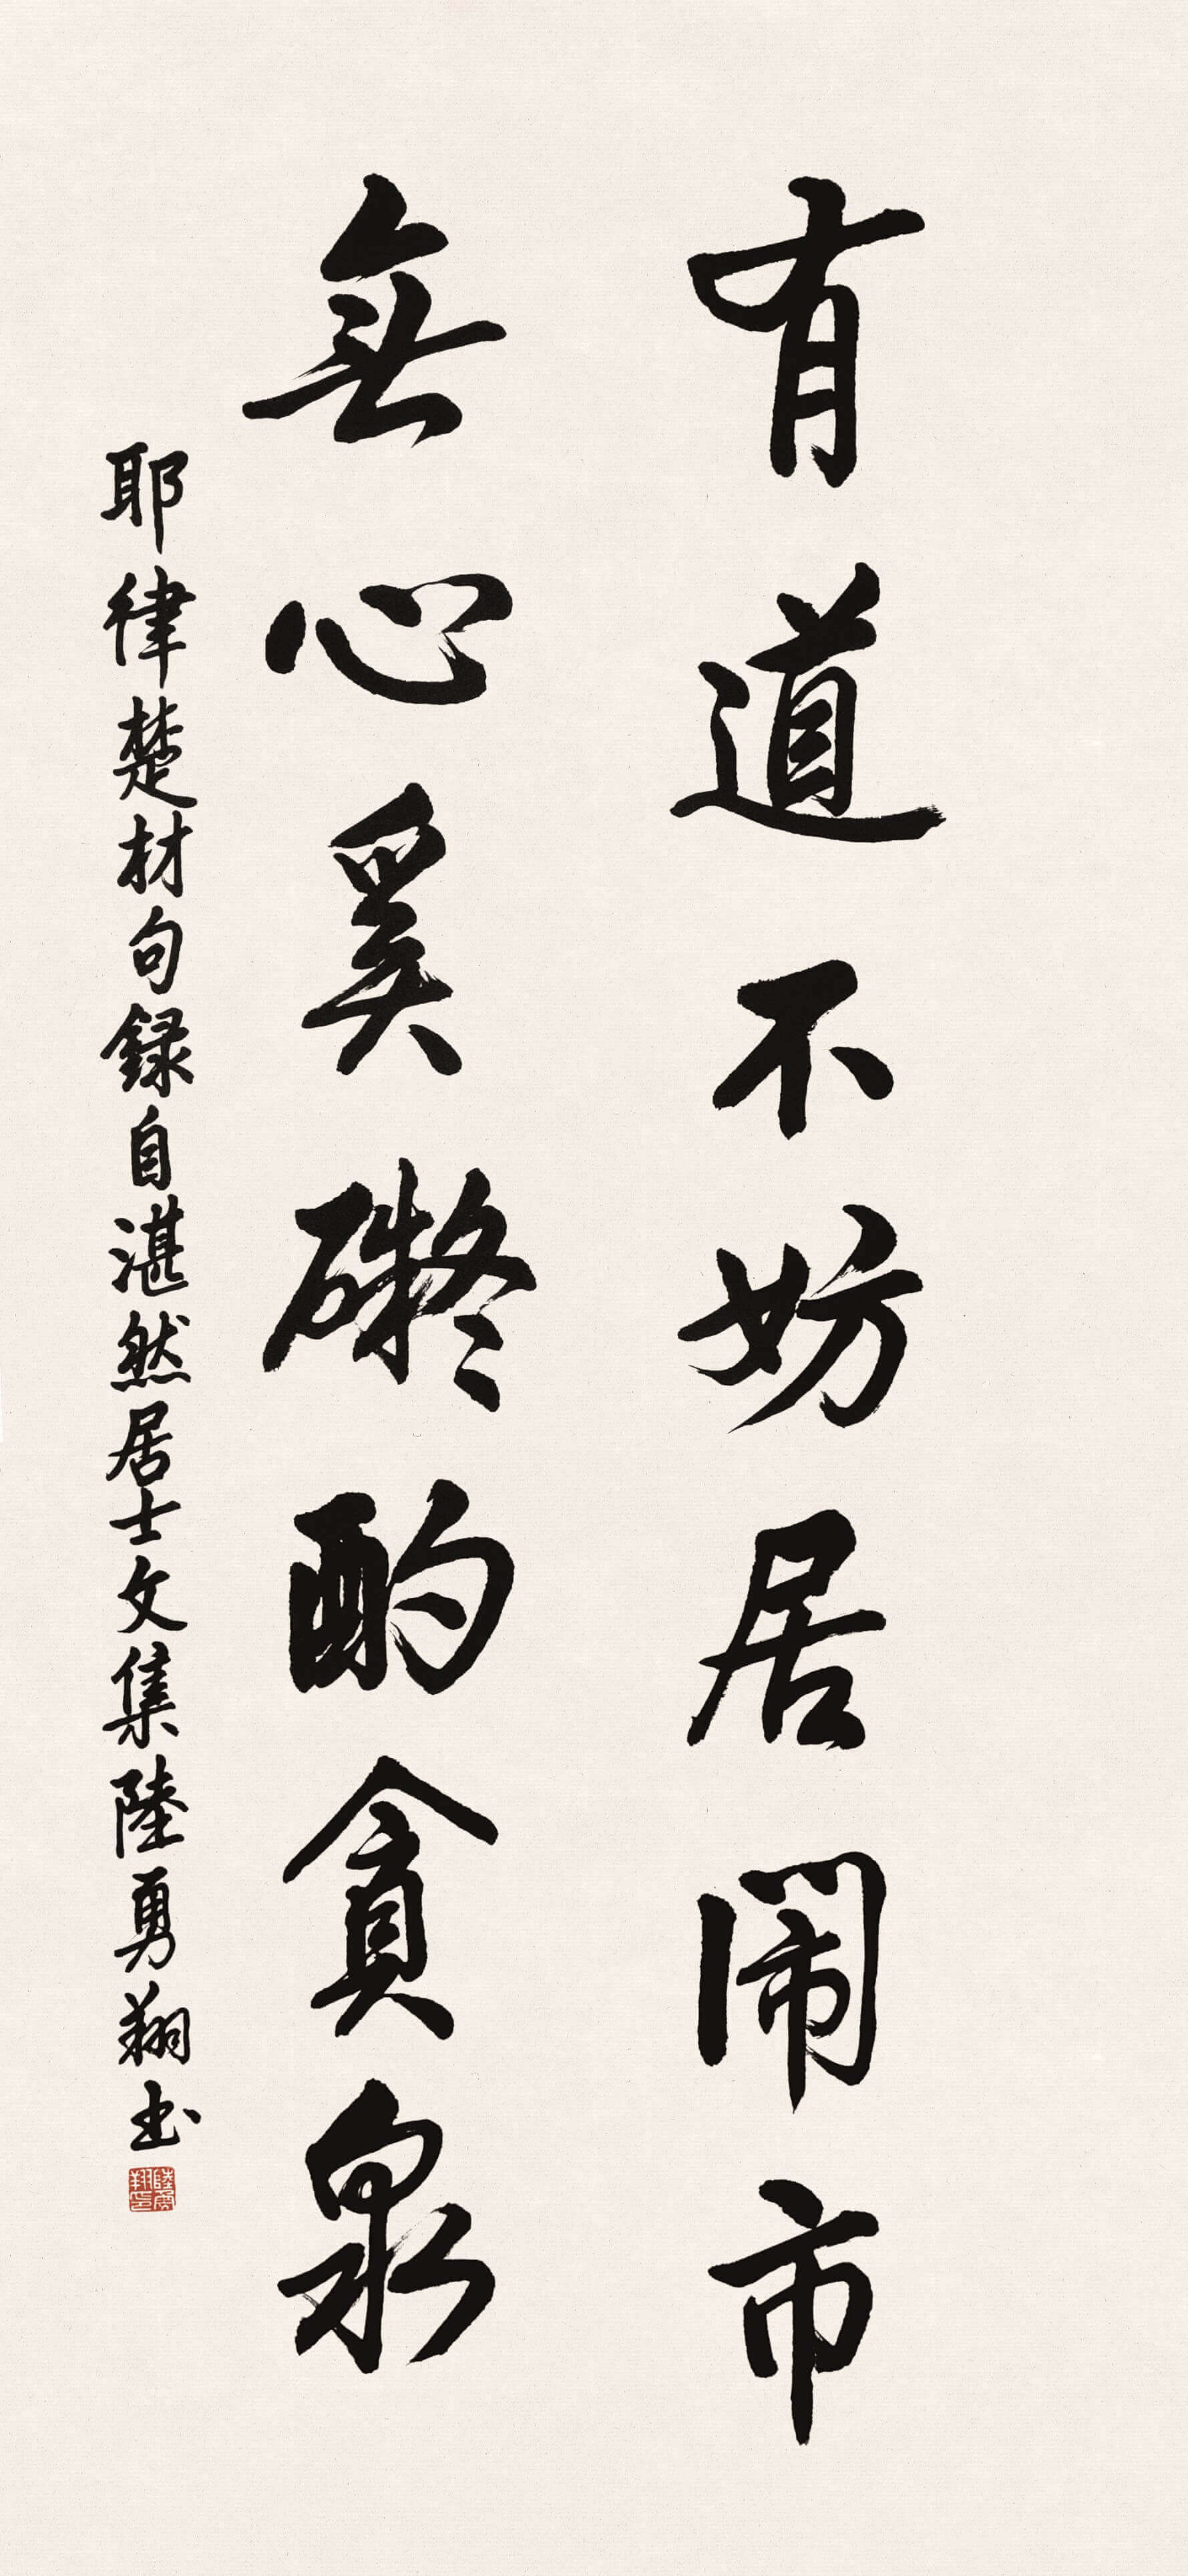 有道不妨居闹市
無心奚礙酌貪泉
耶律楚材句録自湛然居士文集陸勇翔书
陸勇翔印